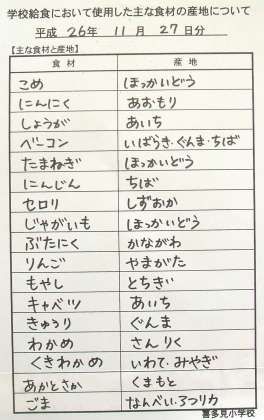 学校給食において使用した主な食材の産地について
平成 26年 11月 27日分
【主な食材と産地】
食材 産地
こめ ほっかいどう
にんにく あおもり
しょうが あいち
ベーコン いばらき・ぐんま・ちば
たまねぎ ほっかいどう
にんじん ちば
セロリ しずおか
じゃがいも ほっかいどう
ぶたにく かながわ
りんご やまがた
もやし とちぎ
キャベツ あいち
きゅうり ぐんま
わかめ さんりく
くきわかめ いわて・みやぎ
あかとさか くまもと
ごま なんべい・アフリカ
喜多見小学校